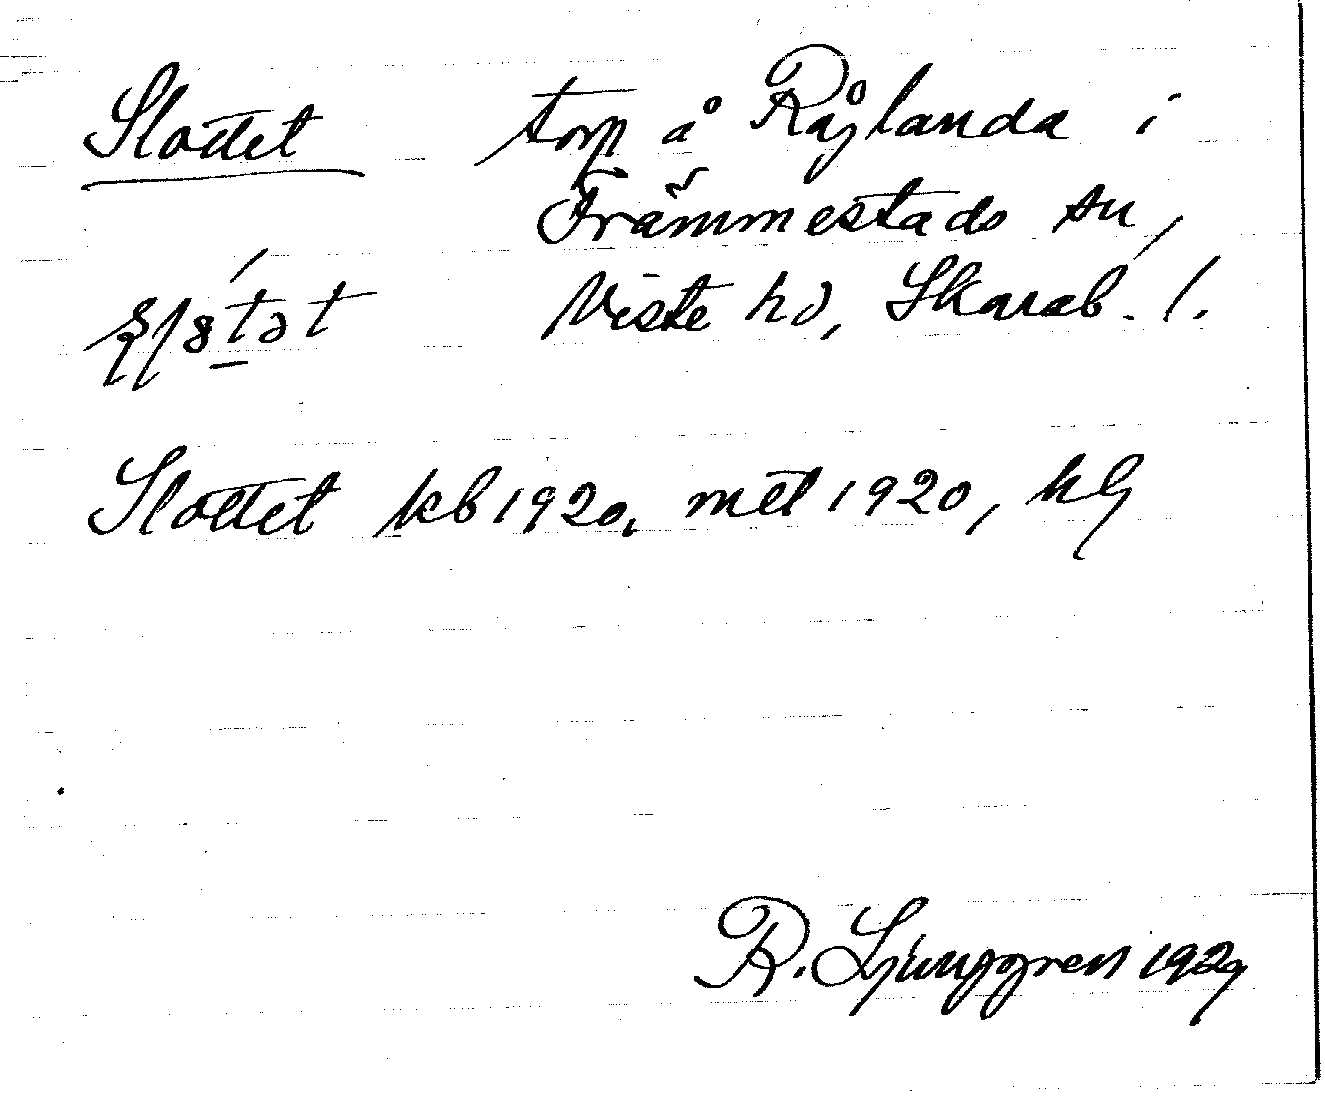 Slottet torp å Råglanda i
Främmestads sn,
Viste hd, Skarab. l.
Slottet kb 1920, mtl 1920, hg
R. Ljunggren 1929